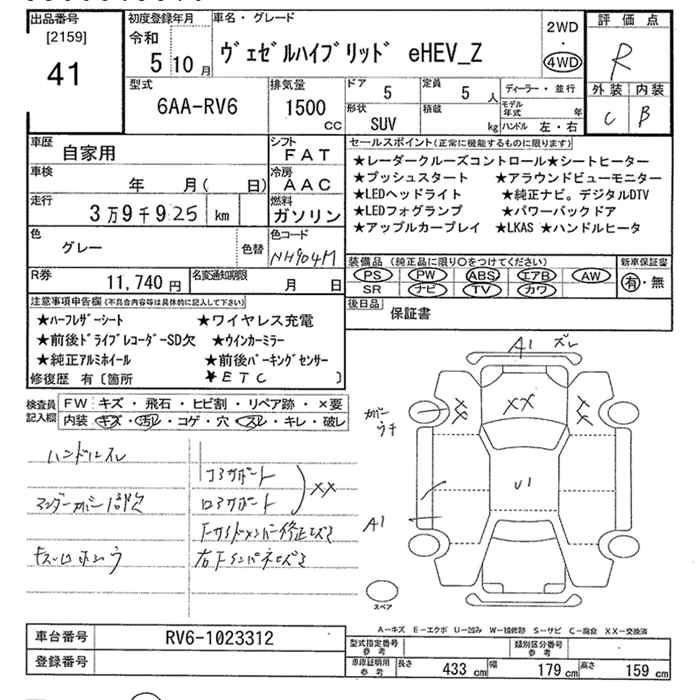 出品番号
[2159]
41
初度登録年月
令和
5 10 月
車名・グレード
ヴェゼルハイブリッド eHEV_Z
2WD
・
4WD
評価点
R
外装 内装
C B
型式
6AA-RV6
排気量
1500
CC
ドア
5
定員
5 人
形状
SUV
積載
kg
ディーラー・並行
モデル年式 年
ハンドル 左・右
車歴
自家用
シフト
FAT
車検
年 月( 日)
冷房
AAC
走行
3万9千925 km
燃料
ガソリン
色
グレー
色替
色コード
NH904M
R券
11,740 円
名変通知期限
月 日
セールスポイント(正常に機能するものに限ります)
★レーダークルーズコントロール★シートヒーター
★プッシュスタート ★アラウンドビューモニター
★LEDヘッドライト ★純正ナビ。デジタルDTV
★LEDフォグランプ ★パワーバックドア
★アップルカープレイ ★LKAS ★ハンドルヒータ
装備品 (純正品に限り○をつけてください)
PS PW ABS エアB AW
SR ナビ TV カワ
新車保証書
有・無
後日品
保証書
注意事項申告欄(不具合内容等は具体的に記入して下さい)
★ハーフレザーシート ★ワイヤレス充電
★前後ドライブレコーダーSD欠 ★ウインカーミラー
★純正アルミホイール ★前後パーキングセンサー
修復歴 有〔箇所 ★ETC 〕
検査員記入欄
FW キズ・飛石・ヒビ割・リペア跡・×要
内装 キズ・汚レ・コゲ・穴・スレ・キレ・破レ
ハンドルスレ
アンダーカバー 1部欠
コアサポート
ロアサポート
XX
右
A1 ズレ
XX
XX
XX
カバーウチ
U1
A1
スペア
A－キズ E－エクボ U－凹み W－補修跡 S－サビ C－腐食 XX－交換済
車台番号
RV6-1023312
登録番号
型式指定番号
参考
類別区分番号
参考
車庫証明用
参考
長さ 433 cm 幅 179 cm 高さ 159 cm